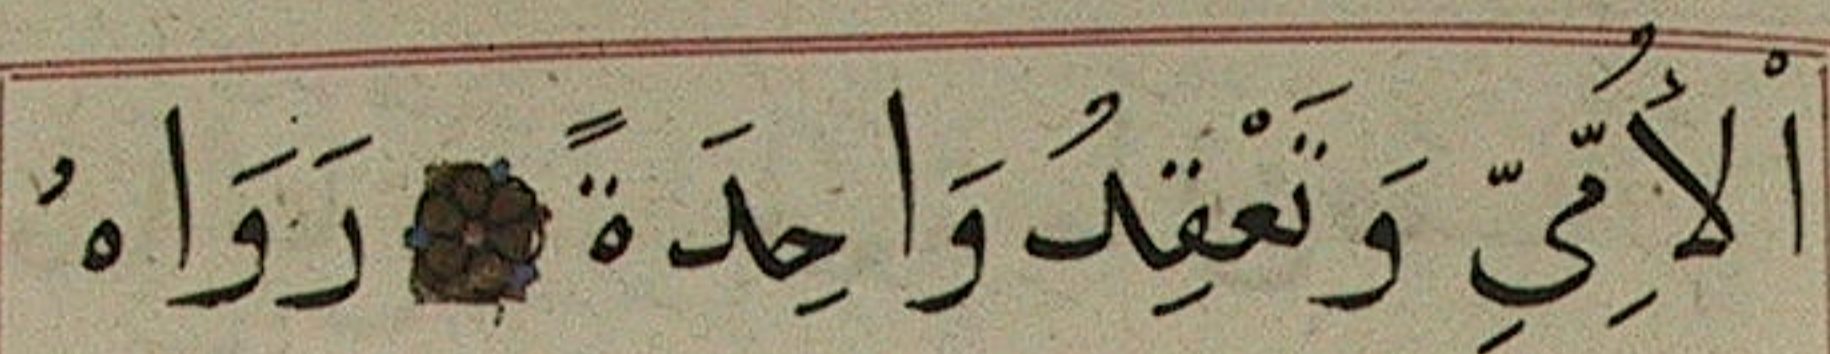 اْلأُمِّيِّ وَتَعْقِدُ وَاحِدَةً رَوَاهُ